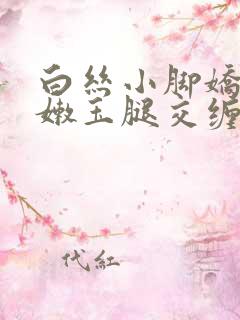 白丝小脚娇
嫩玉腿交缠
代红